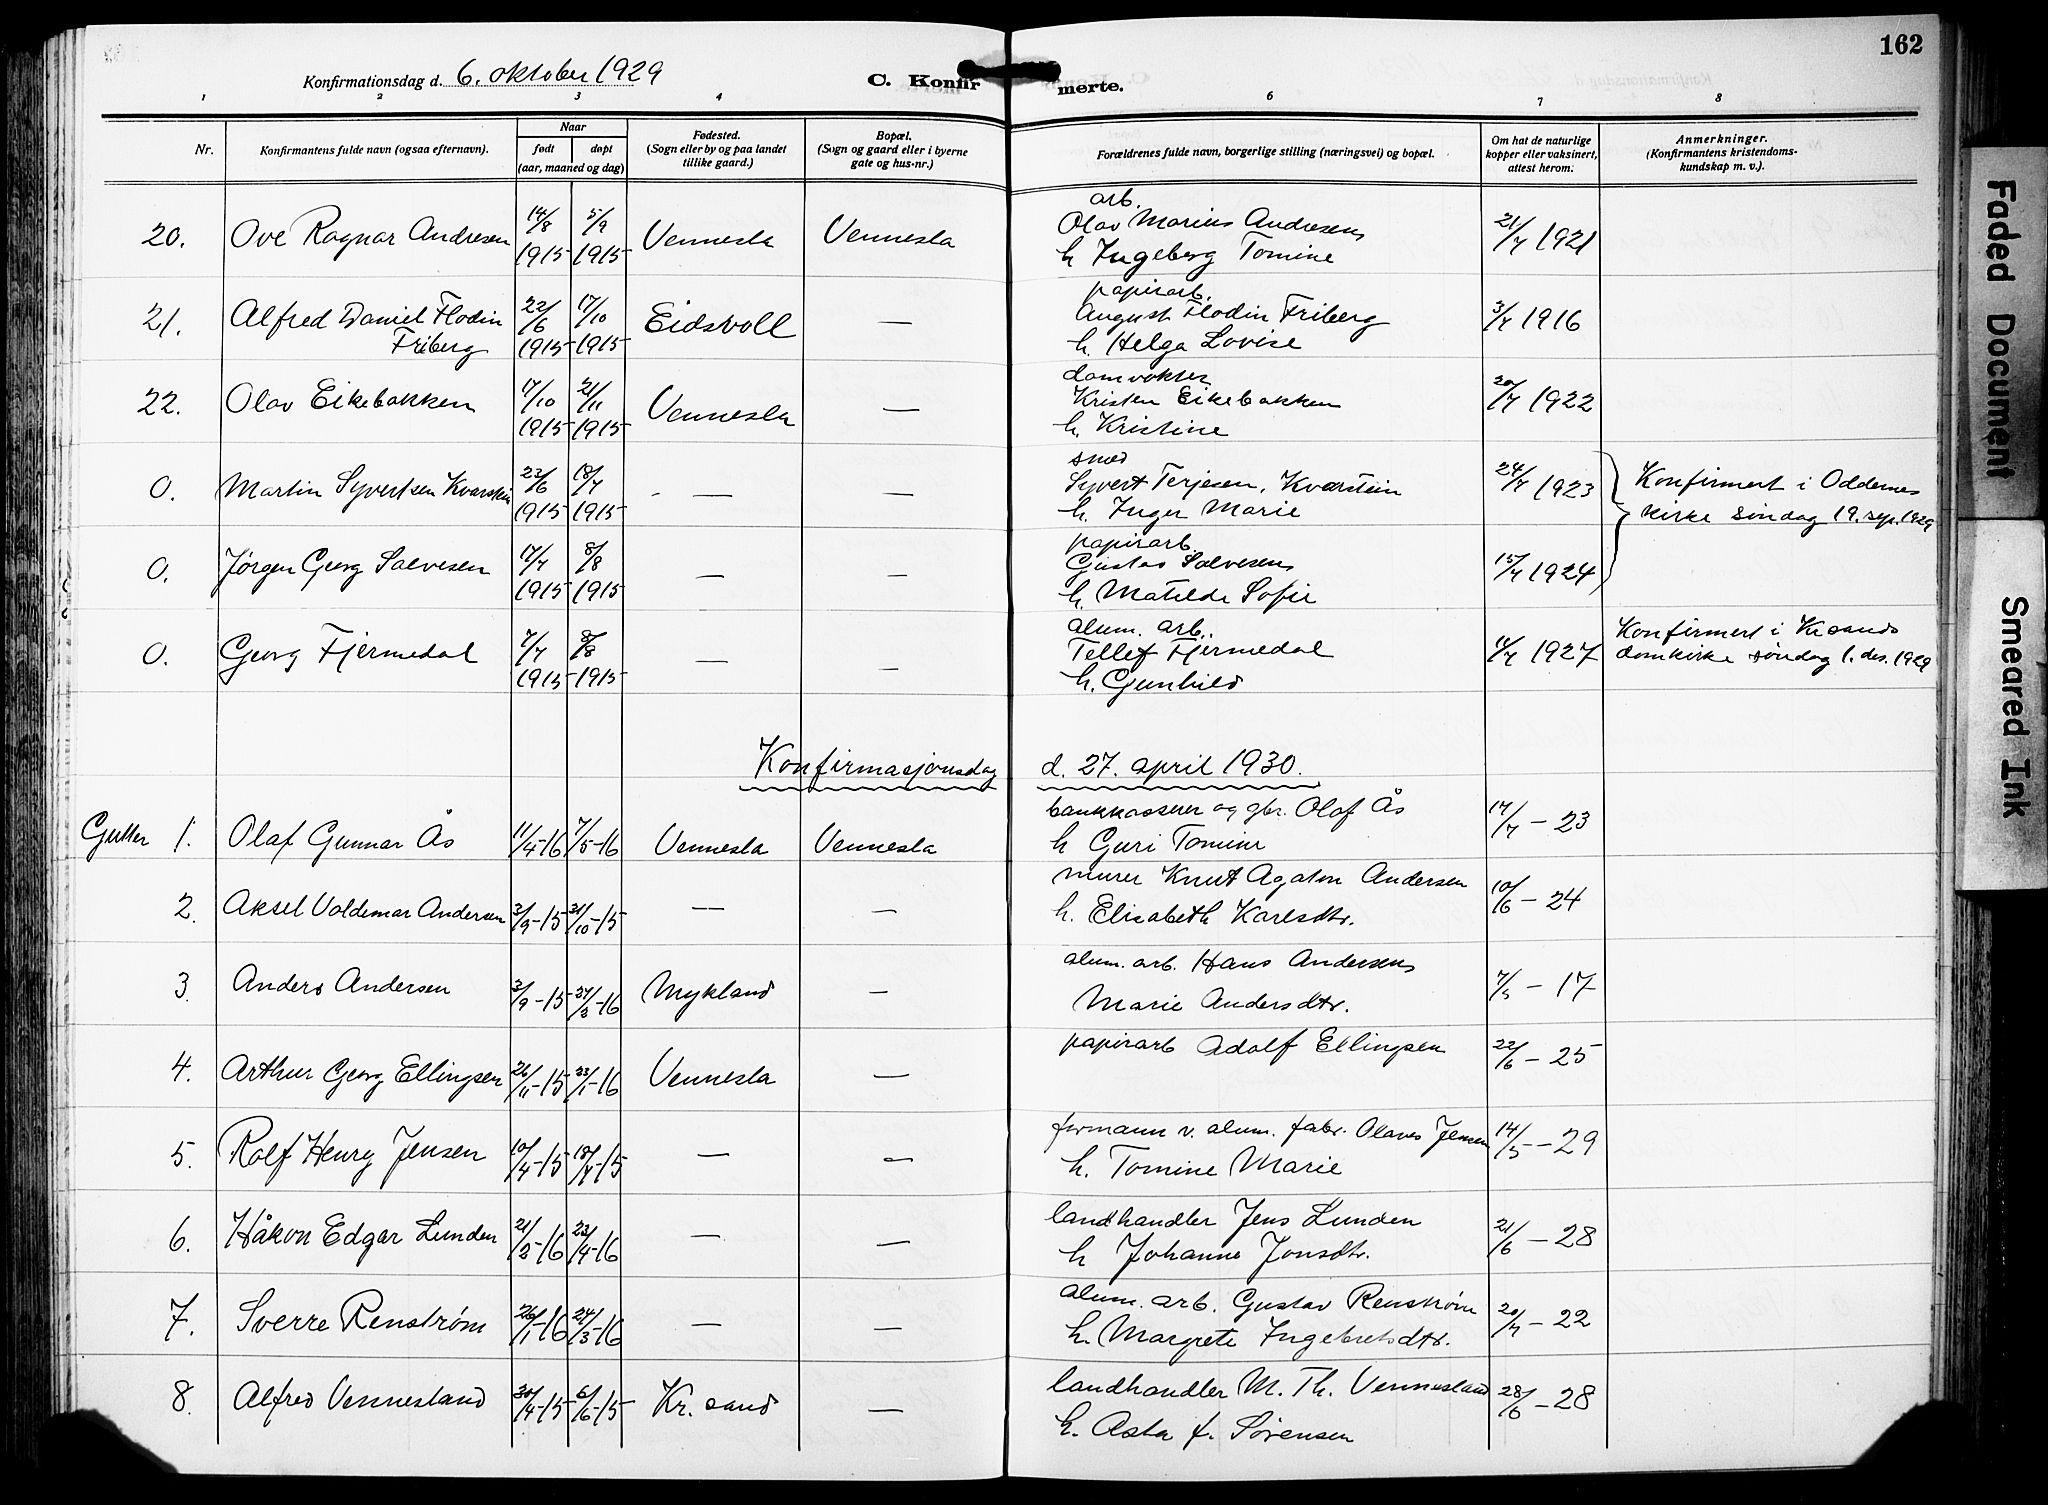 162
Konfirmationsdag d. 6. oktober 1929
C. Konfirmerte.
1 2 3 4 5 6 7 8
Nr.
Konfirmantens fulde navn (ogsaa efternavn).
Naar
født døpt
(aar, maaned og dag)
Fødested.
(Sogn eller by og paa landet
tillike gaard.)
Bopæl.
(Sogn og gaard eller i byerne
gate og hus-nr.)
Forældrenes fulde navn, borgerlige stilling (næringsvei) og bopæl.
Om hat de naturlige
kopper eller vaksinert,
attest herom.
Anmerkninger.
(Konfirmantens kristendoms-
kundskap m. v.).
arb.
20. Ove Ragnar Andresen 14/8 1915 5/9 1915 Vennesla Vennesla Olav Marius Andresen 21/7 1921
h Ingeberg Tomine
papirarb.
21. Alfred Daniel Flodin 22/6 1915 17/10 1915 Eidsvoll — August Flodin Friberg 3/7 1916
Friberg h. Helga Lovise
damvokter
22. Olav Eikebakken 17/10 1915 21/11 1915 Vennesla — Kristen Eikebakken 20/7 1922
h. Kristine
smed
0. Martin Syvertsen Kvarstein 23/6 1915 18/7 1915 — — Syvert Terjesen, Kvarstein 24/7 1923 Konfirmert i Oddernes
h. Inger Marie kirke søndag 19. sep. 1929
papirarb.
0. Jørgen Georg Salvesen 17/7 1915 8/8 1915 — — Gustav Salvesen 15/7 1924
h. Matilde Sofie
alum. arb. Konfirmert i Krsands
0. Georg Fjermedal 7/7 1915 8/8 1915 — — Tellef Fjermedal 11/7 1927 domkirke søndag 1. des. 1929
h. Gunhild
Konfirmasjonsdag d. 27. april 1930.
Gutter 1. Olaf Gunnar Ås 11/4-16 7/5-16 Vennesla Vennesla bankkasserer og gbr. Olaf Ås 17/7 - 23
h Guri Tomine
2. Aksel Valdemar Andersen 3/9-15 31/10-15 — — murer Knut Agaton Andersen 10/6 - 24
h. Elisabeth Karlsdtr.
3. Anders Andersen 3/9-15 27/2-16 Mykland — alum. arb. Hans Andersen 7/5 - 17
Marie Andersdtr.
4. Arthur Georg Ellingsen 26/11-15 23/1-16 Vennesla — papirarb Adolf Ellingsen 22/6 - 25
5. Rolf Henry Jensen 10/4-15 18/7-15 — — formann v. alum. fabr. Olaves Jensen 14/5 - 29
h. Tomine Marie
6. Håkon Edgar Lunden 21/2-16 23/4-16 — — landhandler Jens Lunden 21/6 - 28
h Johanne Jonsdtr.
7. Sverre Renstrøm 26/1-16 24/3-16 — — alum. arb. Gustav Renstrøm 20/7 - 22
h. Margrete Ingebretsdtr.
8. Alfred Vennesland 30/4-15 6/6-15 Kr. sand — landhandler M. Th. Vennesland 28/6 - 28
h. Asta f. Sørensen
Faded Document
Smeared Ink